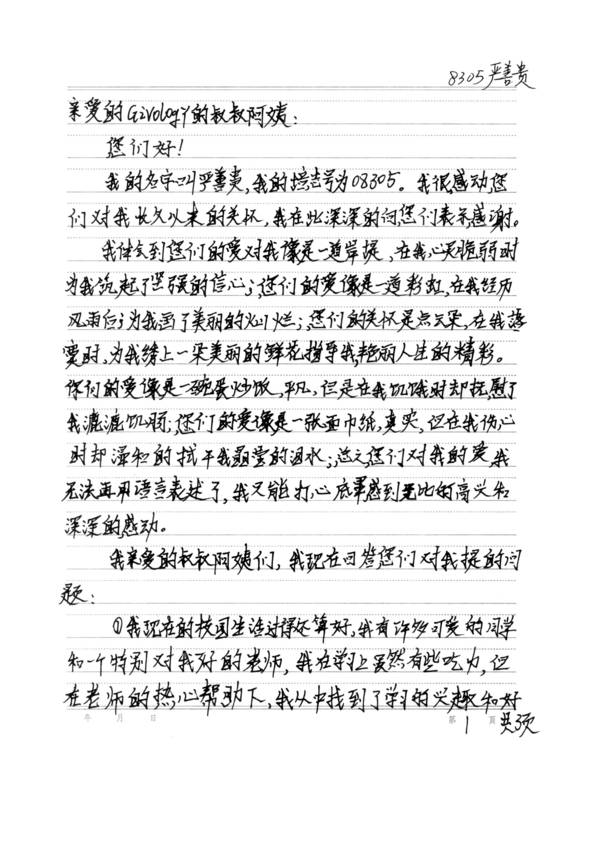 8305严善贵
亲爱的Givology的叔叔阿姨：
您们好！
我的名字叫严善贵，我的培号为08305。我很感动您
们对我长久以来的关怀，我在此深深的向您们表示感谢。
我体会到您们的爱对我像是一道岸堤，在我心灵脆弱时
为我筑起了坚强的信心；您们的爱像是一道彩虹，在我经历
风雨后，为我画了美丽的灿烂；您们的关怀是点云朵，在我落
时，为我绣上一朵美丽的鲜花指导我艳丽人生的精彩。
你们的爱像是一碗蛋炒饭，平凡，但是在我饥饿时却抚慰了
我漉漉饥肠；您们的爱像是一张面巾纸，真实，但在我伤心
时却温和的拭干我晶莹的泪水；您们对我的爱，我
无法再用语言表述了，我只能打心底里感到无比的高兴和
深深的感动。
我亲爱的叔叔阿姨们，我现在回答您们对我提的问
题：
①我现在的校园生活过得还算好，我有许多可爱的同学
和一个特别对我好的老师，我在学习上虽然有些吃力，但
在老师的热心帮助下，我从中找到了学习的兴趣和好
年 月 日 第 1 页 共3页